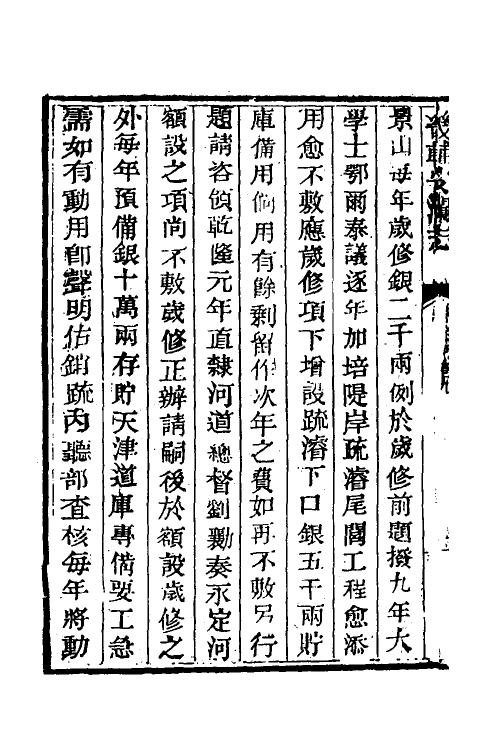 畿輔安瀾志
景山每年歲修銀二千兩例於歲修前題撥九年大
學士鄂爾泰議逐年加培隄岸疏濬尾閭工程愈添
用愈不敷應歲修項下增設疏濬下口銀五千兩貯
庫備用倘用有餘剩留作次年之費如再不敷另行
題請咨領乾隆元年直隸河道總督劉勷奏永定河
額設之項尚不敷歲修正辦請嗣後於額設歲修之
外每年預備銀十萬兩存貯天津道庫專備要工急
需如有動用卽聲明估銷疏內聽部查核每年將動